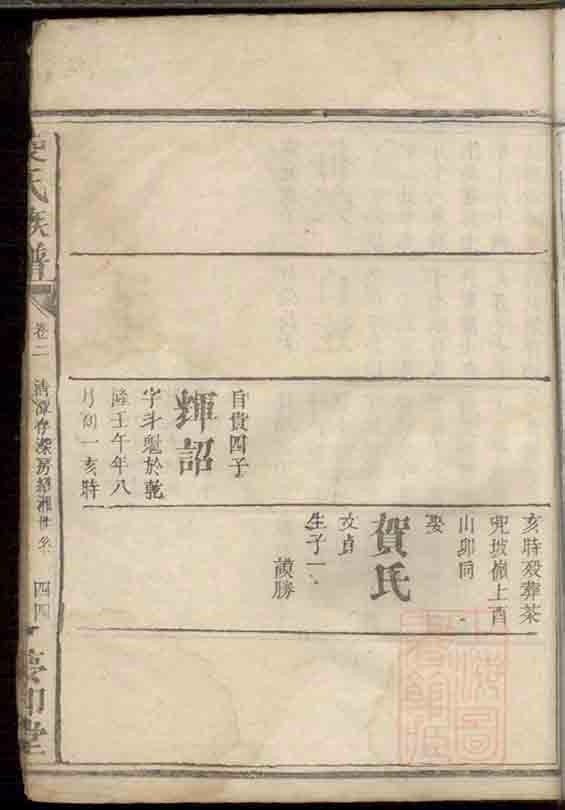 自貴四子
輝詔
字斗魁於乾
隆壬午年八
月初一亥時
亥時歿葬茶
兜坡嶺上酉
山卯同
娶
賀氏
文貞
生子一
謨勝
氏族譜
卷二
房紹湘世系
四四